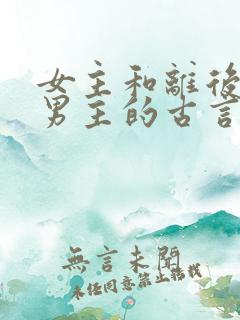 女主和離後
男主的古言
無言未開
未经同意禁止搭桟